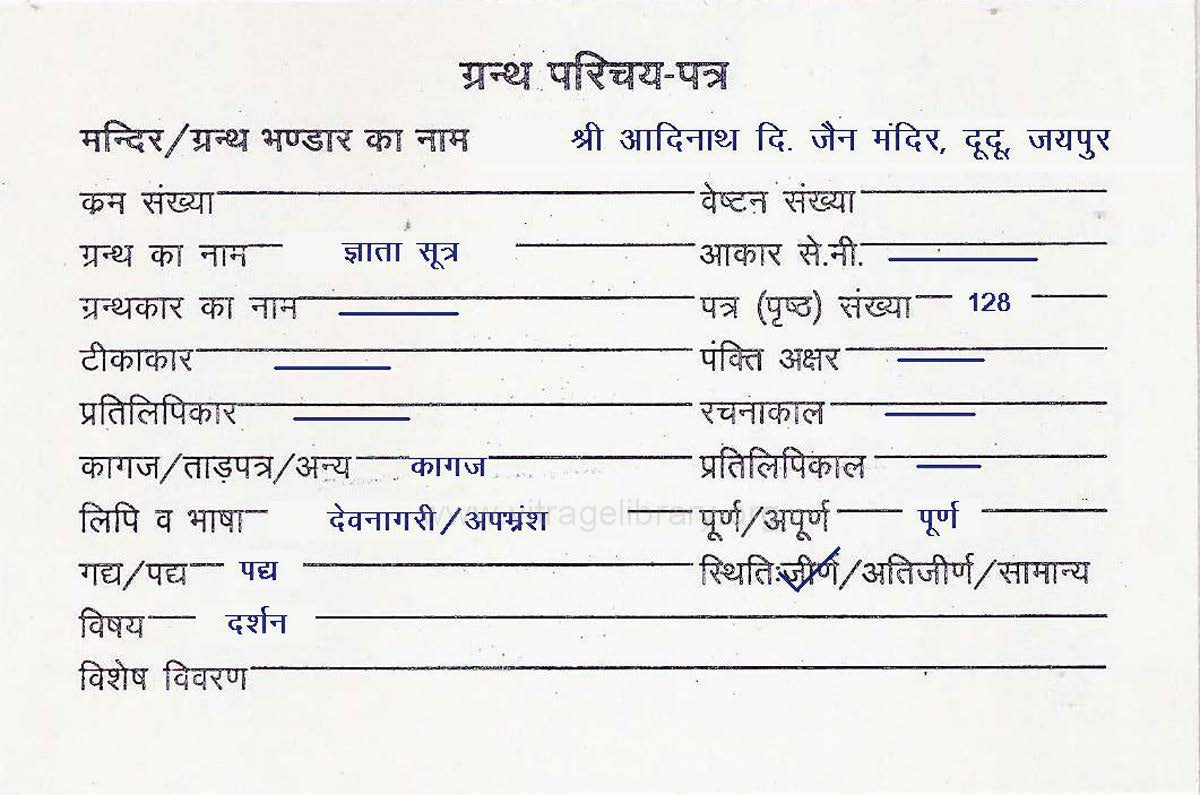 ग्रन्थ परिचय-पत्र
मन्दिर/ग्रन्थ भण्डार का नाम श्री आदिनाथ दि. जैन मंदिर, दूदू, जयपुर
क्रम संख्या वेष्टन संख्या
ग्रन्थ का नाम ज्ञाता सूत्र आकार से.मी.
ग्रन्थकार का नाम पत्र (पृष्ठ) संख्या 128
टीकाकार पंक्ति अक्षर
प्रतिलिपिकार रचनाकाल
कागज/ताड़पत्र/अन्य कागज प्रतिलिपिकाल
लिपि व भाषा देवनागरी/अपभ्रंश पूर्ण/अपूर्ण पूर्ण
गद्य/पद्य पद्य स्थितिः जीर्ण/अतिजीर्ण/सामान्य
विषय दर्शन
विशेष विवरण